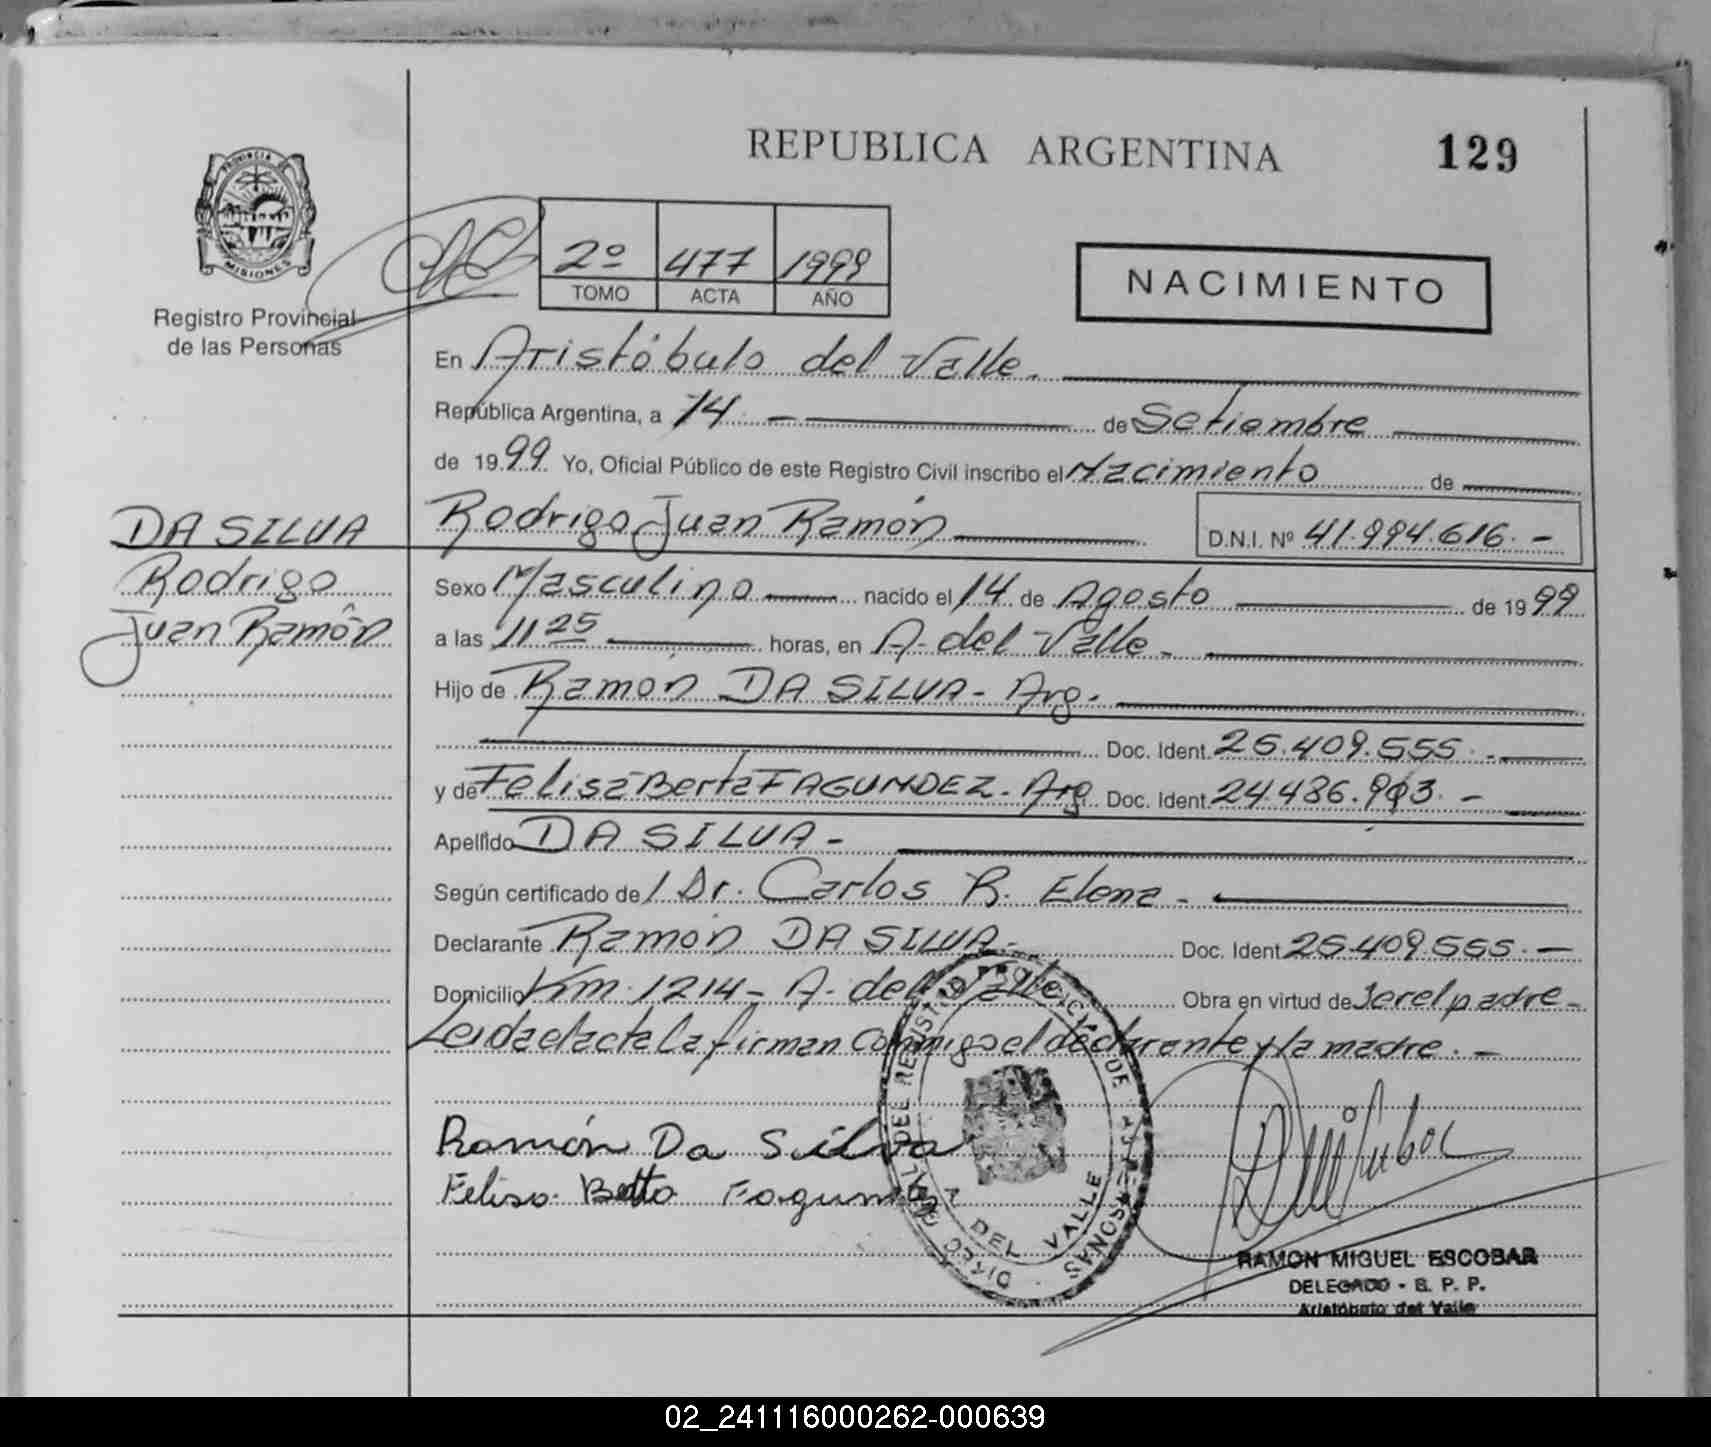 REPUBLICA ARGENTINA 129
PROVINCIA DE MISIONES
Registro Provincial
de las Personas
2º 477 1999
TOMO ACTA AÑO
NACIMIENTO
En Aristóbulo del Valle.
República Argentina, a 14 - de Setiembre
de 1999 Yo, Oficial Público de este Registro Civil inscribo el Nacimiento de
DA SILVA
Rodrigo
Juan Ramón
Rodrigo Juan Ramón D.N.I. Nº 41.994.616.-
Sexo Masculino nacido el 14 de Agosto de 1999
a las 11 25 horas, en A. del Valle-
Hijo de Ramón DA SILVA- Arg.
Doc. Ident. 25.409.555.-
y de Felisa Berta FAGUNDEZ. Arg Doc. Ident. 24.486.
Apellido DA SILVA-
Según certificado de Dr. Carlos R. Elena-
Declarante Ramón DA SILVA- Doc. Ident 25.409.555.-
Domicilio Km. 1214- A. del Valle Obra en virtud de Ser el padre-
Leida el acta la firman conmigo el declarante y la madre.-
Ramón Da Silva
Felisa Berta
DEL VALLE
RAMON MIGUEL ESCOBAR
DELEGADO - R. P. P.
Aristóbulo del Valle
02_241116000262-000639